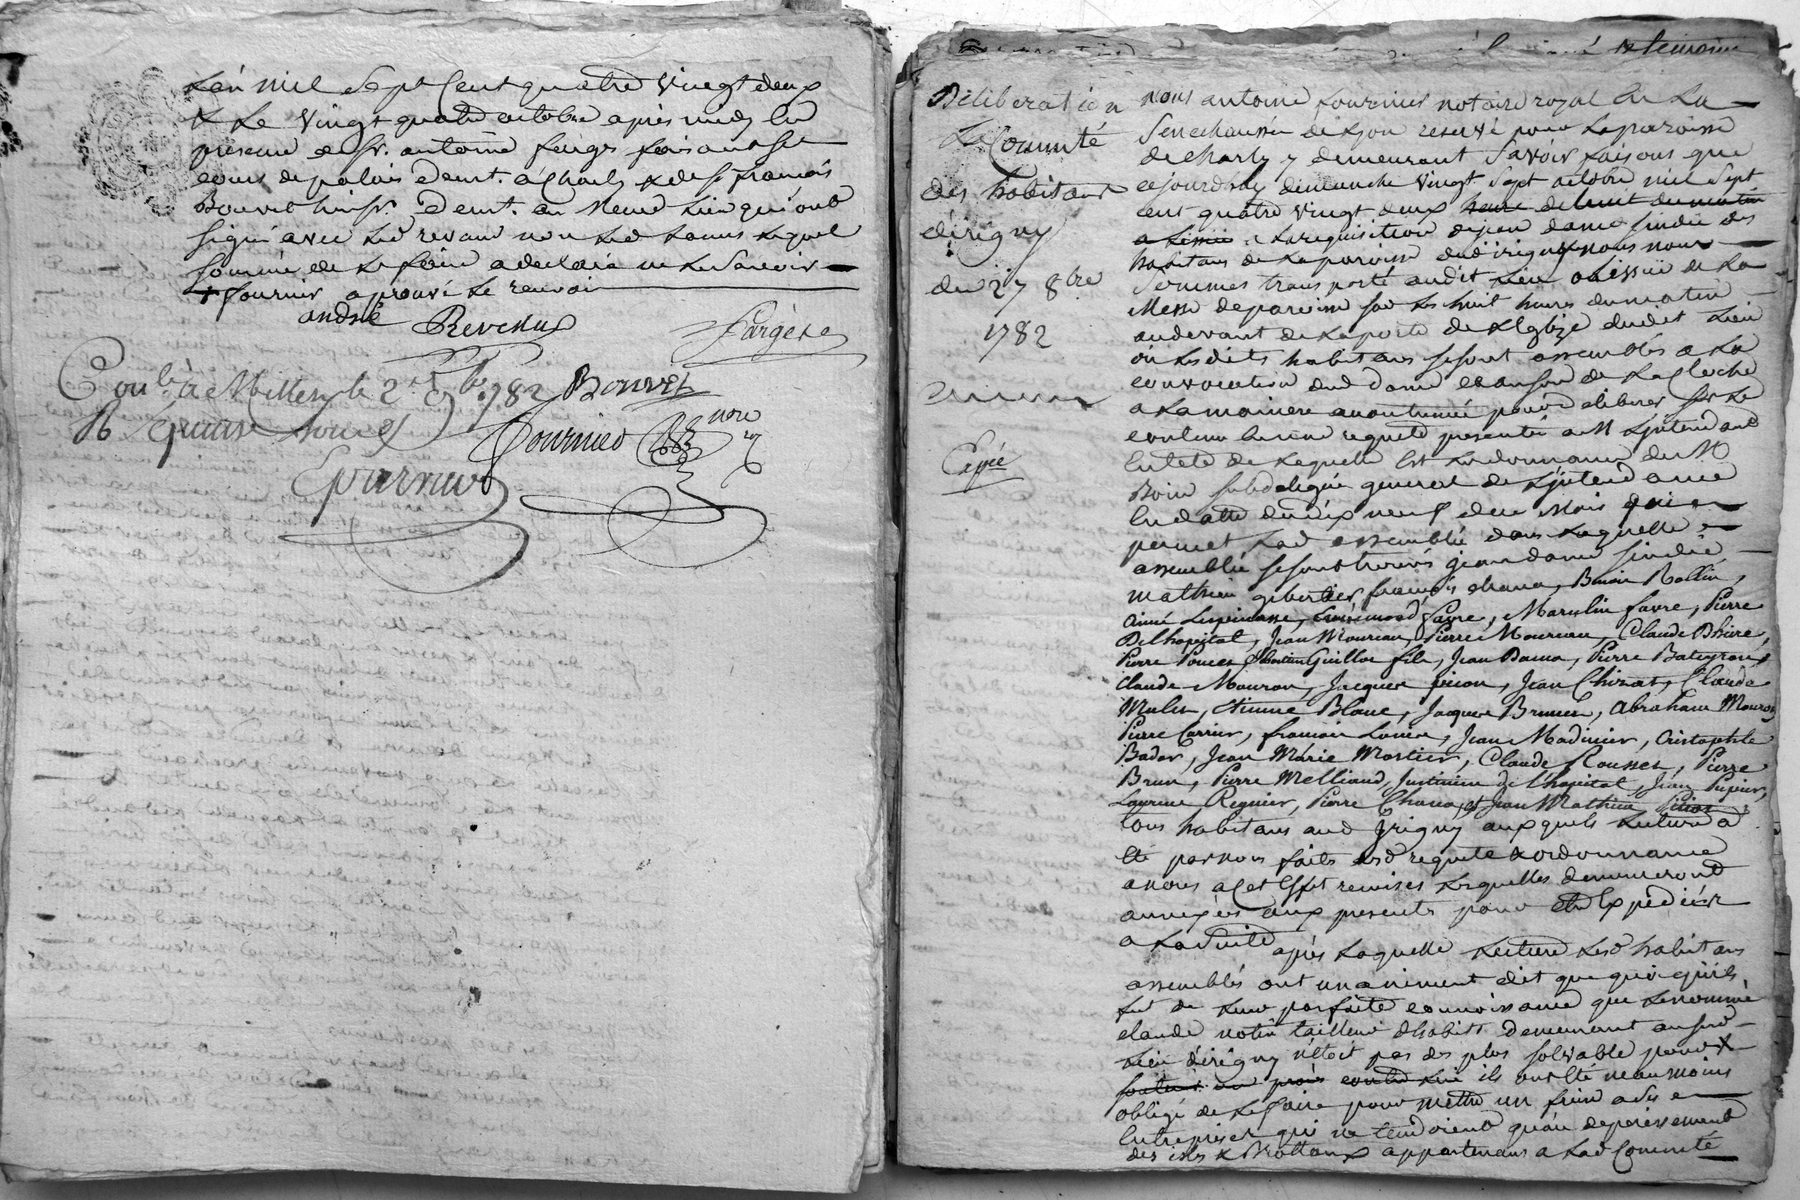 L'an mil sept cent quatre vingt deux
& le vingt quatre octobre après midy en
presence de Sr. antoine farges faisant sec
cour de palais demt. à Charly & de Sr françois
Bouvet huissr. demt. au meme lieu qui ont
signé avec led revenu non led Lequel
sommé de le faire a declaré ne le savoir
+ fournir aprouvé le renvoi
andré Revenus fargère
Conlé à Millery le 2e 9bre 1782 Bouvet
R quinze sous
Fournier nore
Epournier
temoins
Déliberation
de Comunté
des habitans
dirigny
du 27 8bre
1782
Expée
nous antoine fournier notaire royal en la
Senechaussée de Lyon reservé pour la paroisse
de charly y demeurant savoir faisons que
cejourdhuy dimanche vingt sept octobre mil sept
cent quatre vingt deux heure de huit du matin
a la requisition de jean dame sindic des
habitans de la paroisse dud irigny nous nous
sommes transporté audit lieu a l'issüe de la
Messe de paroisse sur les huit heures du matin
au devant de la porte de L'Eglize dudit Lieu
où lesdits habitans se sont assemblés a la
convocation dud dame et au son de la cloche
a la maniere accoutumée pour déliberer sur le
contenu en une requete presentée a M L'jntendant
en tete de laquelle est L'ordonnance de M
Boin subdelegué general de L'jntendance
en datte du dix neuf de ce mois qui
permet lad assemblée dans laquelle
assemblée se sont trouvés jean dame sindic
mathieu gibertier, françois chana, Benoit Rollin,
aimé Lespinasse, favre, Marcelin favre, Pierre
Delhopital, Jean Moureau, Pierre Moureau, Claude Bhiere,
Pierre Poncet, Guillot fils, Jean Dama, Pierre Bateyron,
Claude Mouron, Jacques picon, Jean Chirat, Claude
Mulet, Etienne Blanc, Jacques Brunet, Abraham Mouron,
Pierre Carrier, françois Lanier, Jean Madinier, Cristophle
Bador, Jean Marie Mortier, Claude Rousset, Pierre
Brun, Pierre Melliand, Justinien de Lhopital, Jean Pupier,
Laurent Regnier, Pierre Chana, et Jean Mathieu Picon
tous habitans aud Jrigny auxquels Lecture a
été par nous faite desd requete & ordonnance
a nous a cet effet remises Lesquelles demeureront
annexées aux presentes pour etre Expediées
a la suite après laquelle Lecture lesd habitans
assemblés ont unanimement dit que quoiqu'ils
fut de leur parfaite connoissance que le nommé
claude notin tailleur d'habits demeurant audit
lieu d'irigny n'étoit pas des plus solvable pour
soutenir un procès contre lui ils ont été neanmoins
obligé de le faire pour mettre un frein a ses
Entreprises qui ne tendoient qu'au deperissement
des isles & Brotteaux appartenans a lad Commté